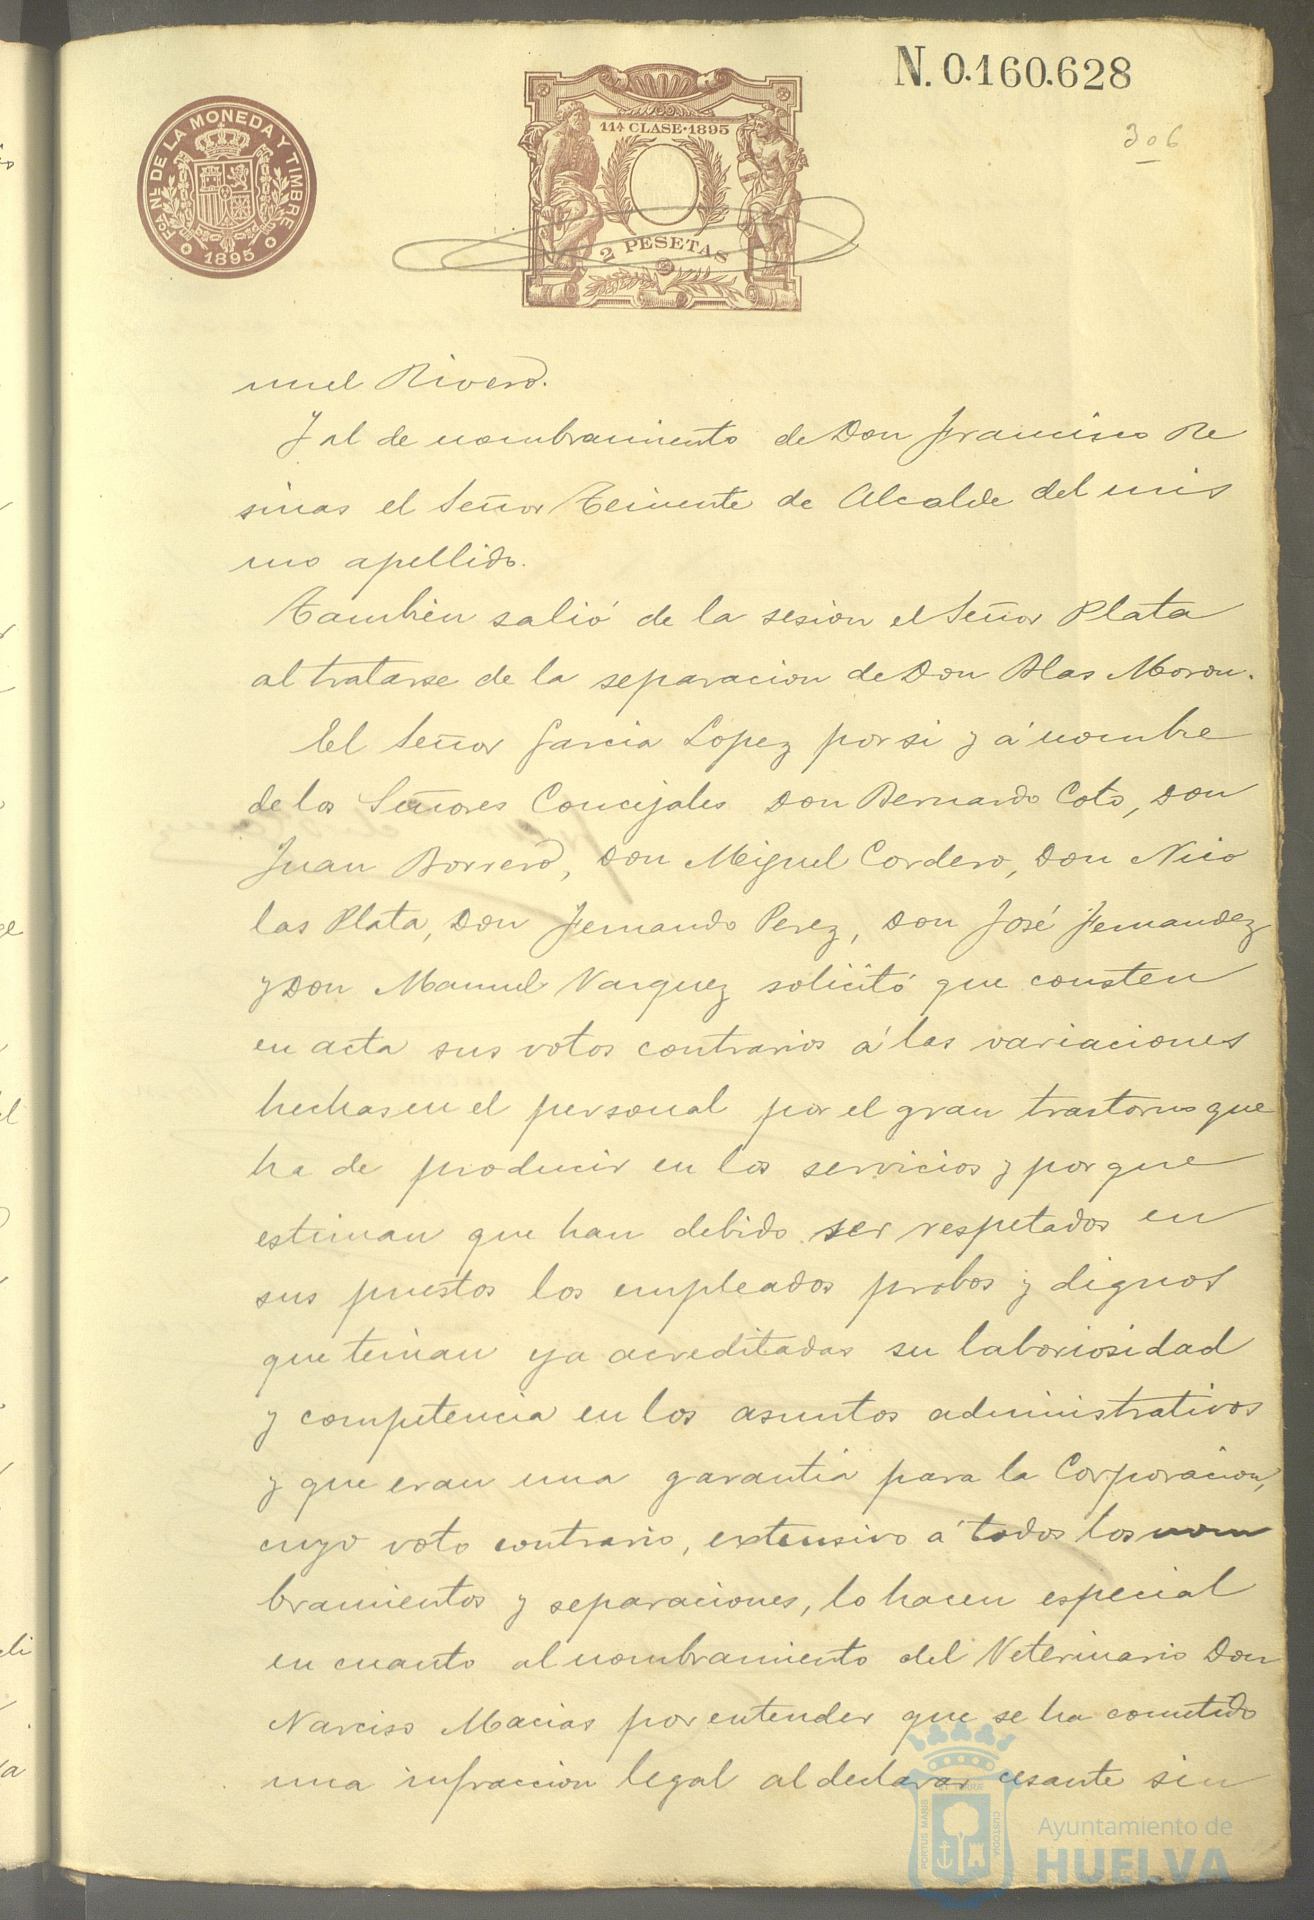 N. 0.160.628
306
Fca. Nl. DE LA MONEDA Y TIMBRE
1895
11ª CLASE·1895
2 PESETAS
nuel Rivero.
Y al de nombramiento de Don Francisco Re
sinas el Señor Teniente de Alcalde del mis
mo apellido.
Tambien salió de la sesion el Señor Plata
al tratarse de la separacion de Don Blas Moron.
El Señor Garcia Lopez por si y á nombre
de los Señores Concejales Don Bernardo Coto, Don
Juan Borrero, Don Miguel Cordero, Don Nico
las Plata, Don Fernando Perez, Don José Fernandez
y Don Manuel Vazquez solicitó que consten
en acta sus votos contrarios á las variaciones
hechas en el personal por el gran trastorno que
ha de producir en los servicios y porque
estiman que han debido ser respetados en
sus puestos los empleados probos y dignos
que tenian ya acreditadas su laboriosidad
y competencia en los asuntos administrativos
y que eran una garantia para la Corporacion,
cuyo voto contrario, extensivo á todos los nom
bramientos y separaciones, lo hacen especial
en cuanto al nombramiento del Veterinario Don
Narciso Macias por entender que se ha cometido
una infraccion legal al declarar cesante sin
PORTUS MARIS
CUSTODIA
Ayuntamiento de
HUELVA